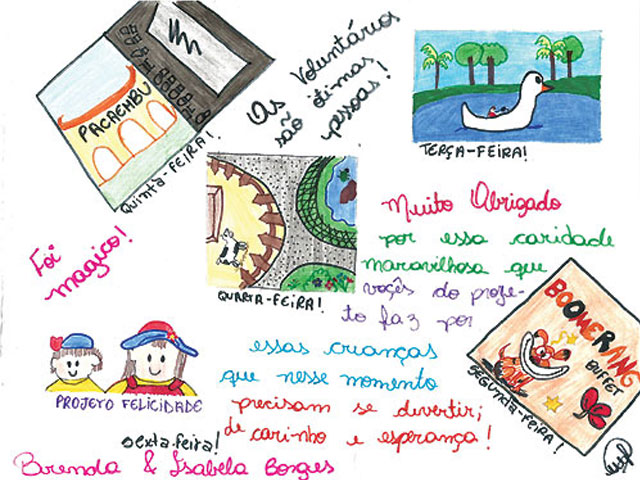 PACAEMBU
QUINTA-FEIRA!
Os Voluntários
são ótimas
pessoas!
TERÇA-FEIRA!
QUARTA-FEIRA!
Foi
magico!
Muito Obrigado
por essa caridade
maravilhosa que
voçês do proje-
to faz por
essas crianças
que nesse momento
precisam se divertir;
de carinho e esperança!
BOOMERANG
BUFFET
SEGUNDA-FEIRA!
PROJETO FELICIDADE
sexta-feira!
Brenda & Isabela Borges